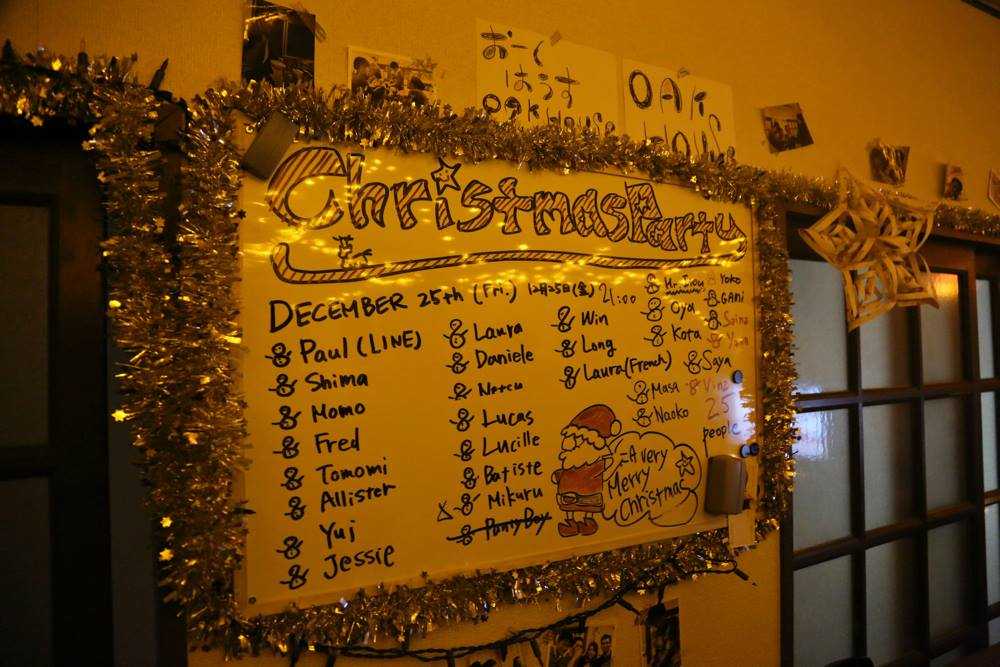 おーく
はうす
OAK
Christmas Party
DECEMBER 25th (Fri.) 12月25日(金) 21:00
Paul (LINE)
Shima
Momo
Fred
Tomomi
Allister
Yuj
Jessie
Laura
Daniele
Lucas
Lucille
Batiste
Mikuru
Panty Boy
Win
Long
Laura (French)
Oya
Kota
Saya
Masa
Naoko
Yoko
GAni
25
people
A very
Merry
Christmas